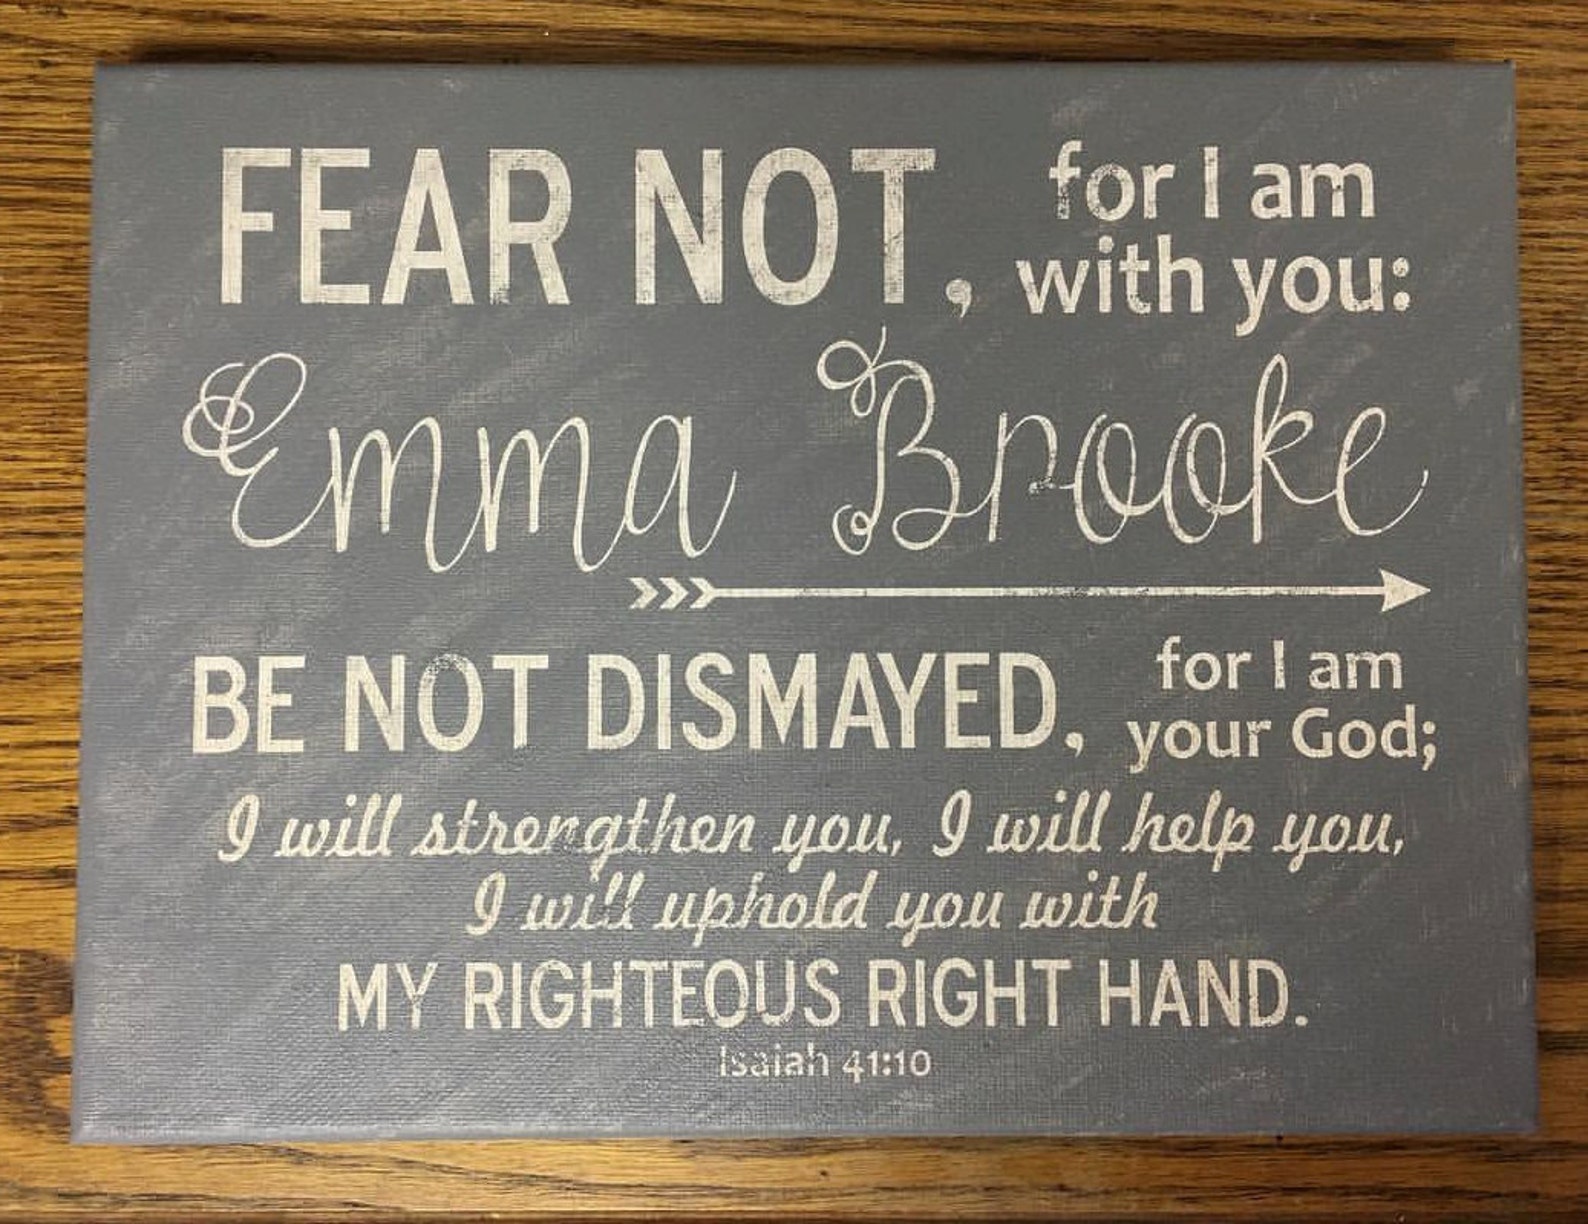 FEAR NOT, for I am
with you:
Emma Brooke
BE NOT DISMAYED, for I am
your God;
I will strengthen you, I will help you,
I will uphold you with
MY RIGHTEOUS RIGHT HAND.
Isaiah 41:10